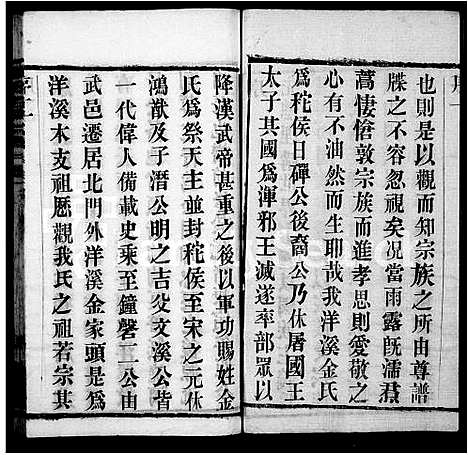 序一
也則是以觀而知宗族之所由尊譜
牒之不容忽視矣况當雨露旣濡焄
蒿悽愴敦宗族而進孝思則愛敬之
心有不油然而生耶哉我洋溪金氏
爲秺侯日磾公後裔公乃休屠國王
太子其國爲渾邪王滅遂率部眾以
降漢武帝甚重之後以軍功賜姓金
氏爲祭天主並封秺侯至宋之元休
鴻猷及子潛公明之吉父文溪公皆
一代偉人備載史乘至鐘磬二公由
武邑遷居北門外洋溪金家頭是爲
洋溪本支祖歷觀我氏之祖若宗其